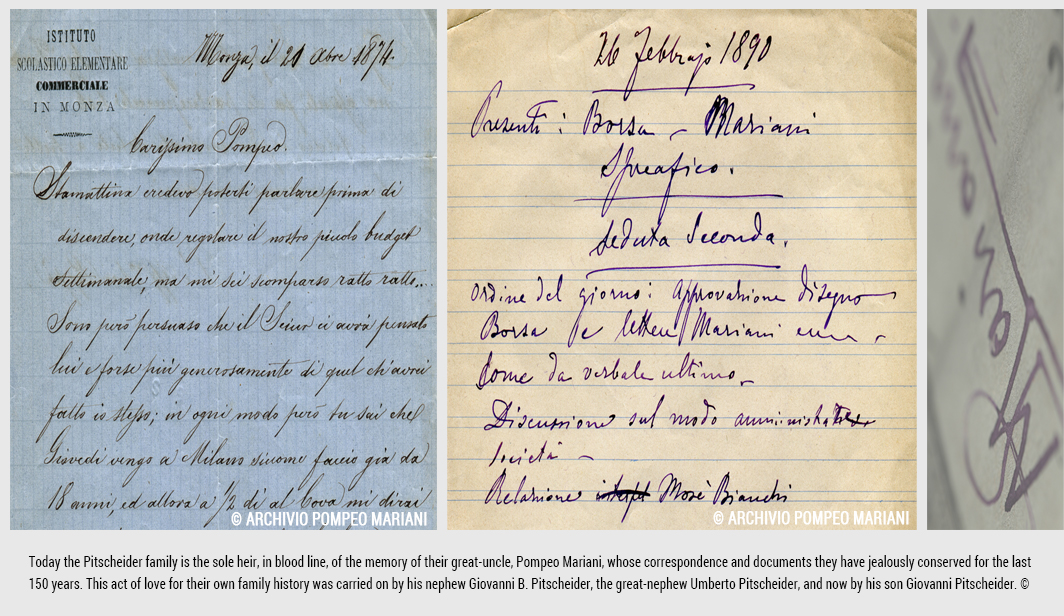 ISTITUTO
SCOLASTICO ELEMENTARE
COMMERCIALE
IN MONZA
Monza, il 21 Xbre 1874.
Carissimo Pompeo.
Stamattina credevo poterti parlare prima di
discendere, onde regolare il nostro piccolo budget
settimanale, ma mi sei scomparso ratto ratto...
Sono però persuaso che il Sciur ci avrà pensato
lui e forse più generosamente di quel ch'avrei
fatto io stesso; in ogni modo però tu sai che
Giovedì vengo a Milano siccome faccio già da
18 anni, ed allora a 1/2 dì al Cova mi dirai
© ARCHIVIO POMPEO MARIANI
26 Febbrajo 1890
Presenti: Borsa - Mariani
Spreafico.
Seduta Seconda.
Ordine del giorno: approvazione disegno
Borsa e lettera Mariani
Come da verbale ultimo
Discussione sul modo
società
Relazione Mosè Bianchi
© ARCHIVIO POMPEO MARIANI
Today the Pitscheider family is the sole heir, in blood line, of the memory of their great-uncle, Pompeo Mariani, whose correspondence and documents they have jealously conserved for the last
150 years. This act of love for their own family history was carried on by his nephew Giovanni B. Pitscheider, the great-nephew Umberto Pitscheider, and now by his son Giovanni Pitscheider. ©